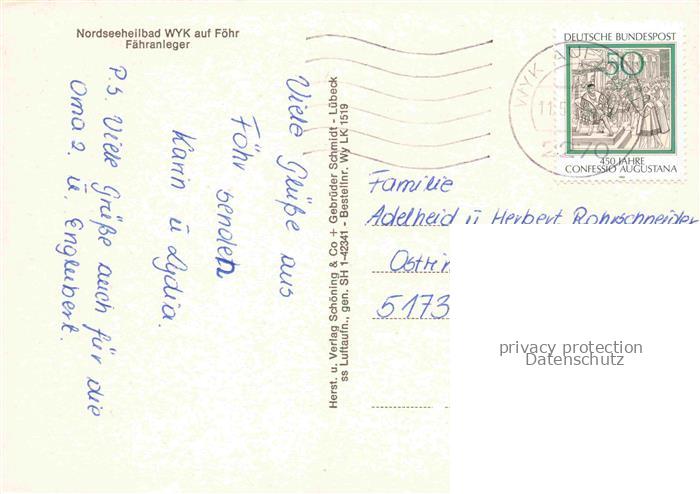 Nordseeheilbad WYK auf Föhr
Fähranleger
Viele Grüße aus
Föhr senden
Karin u Lydia.
P.S. Viele Grüße auch für die
Oma 2. u. Englubert.
Herst. u. Verlag Schöning & Co + Gebrüder Schmidt - Lübeck
ss Luftaufn., gen. SH 1-42341 - Bestellnr. Wy LK 1519
DEUTSCHE BUNDESPOST
50
450 JAHRE
CONFESSIO AUGUSTANA
WYK AUF
11.5
2270
Familie
Adelheid u Herbert Rohrschneider
5173
privacy protection
Datenschutz